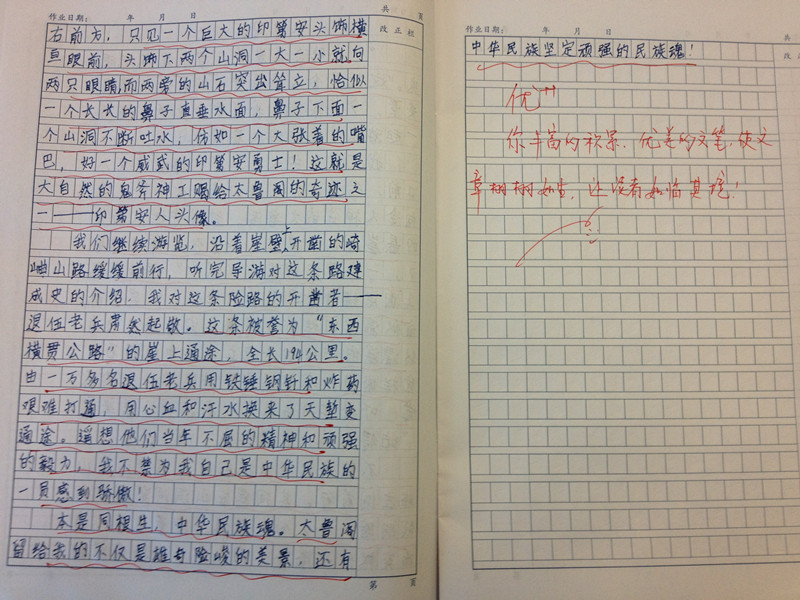 作业日期: 年 月 日 共 页
改正栏
右前方，只见一个巨大的印第安头饰横
亘眼前，头饰下两个山洞一大一小就向
两只眼睛，而两旁的山石突出耸立，恰似
一个长长的鼻子直垂水面，鼻子下面一
个山洞不断吐水，仿如一个大张着的嘴
巴，好一个威武的印第安勇士！这就是
大自然的鬼斧神工赐给太鲁阁的奇迹之
一——印第安人头像。
我们继续游览，沿着崖壁上开凿的崎
岖山路缓缓前行，听完导游对这条路建
成史的介绍，我对这条险路的开凿者——
退伍老兵肃然起敬。这条被誉为“东西
横贯公路”的崖上通途，全长194公里。
由一万多名退伍老兵用铁锤钢针和炸药
艰难打凿，用心血和汗水换来了天堑变
通途。遥想他们当年不屈的精神和顽强
的毅力，我不禁为我自己是中华民族的
一员感到骄傲！
本是同根生，中华民族魂。太鲁阁
留给我的不仅是雄奇险峻的美景，还有
第 页
作业日期: 年 月 日 共
改正
中华民族坚定顽强的民族魂！
优++
你丰富的积累，优美的文笔，使文
章栩栩如生，让读者如临其境！